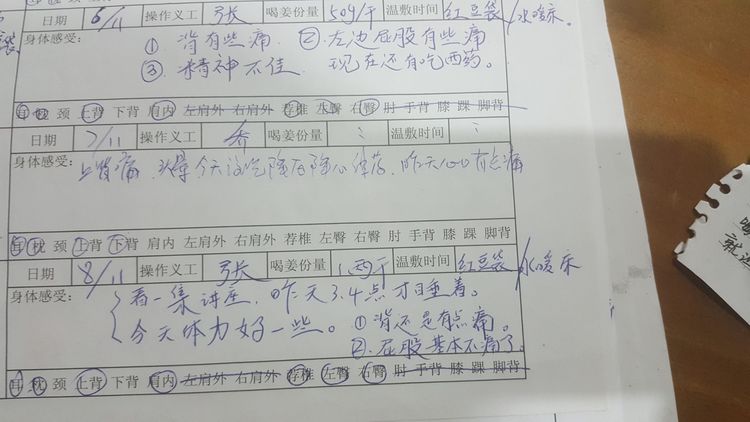 日期 6/11 操作义工 张 喝姜份量 50g/干 温敷时间 红豆袋/水暖床。
身体感受: ①. 背有些痛 ②. 左边屁股有些痛
③. 精神不佳 现在还有吃西药。
耳 枕 颈 上背 下背 肩内 左肩外 右肩外 荐椎 左臀 右臀 肘 手背 膝 踝 脚背
日期 7/11 操作义工 喝姜份量 温敷时间
身体感受: 上背痛 今天没吃降压降心律药, 昨天心口有点痛
耳 枕 颈 上背 下背 肩内 左肩外 右肩外 荐椎 左臀 右臀 肘 手背 膝 踝 脚背
日期 8/11 操作义工 张 喝姜份量 1两干 温敷时间 红豆袋/水暖床
身体感受: 看一集讲座, 昨天3.4点才睡着。
今天体力好一些。 ①背还是有点痛。
②. 屁股基本不痛了。
耳 枕 颈 上背 下背 肩内 左肩外 右肩外 荐椎 左臀 右臀 肘 手背 膝 踝 脚背